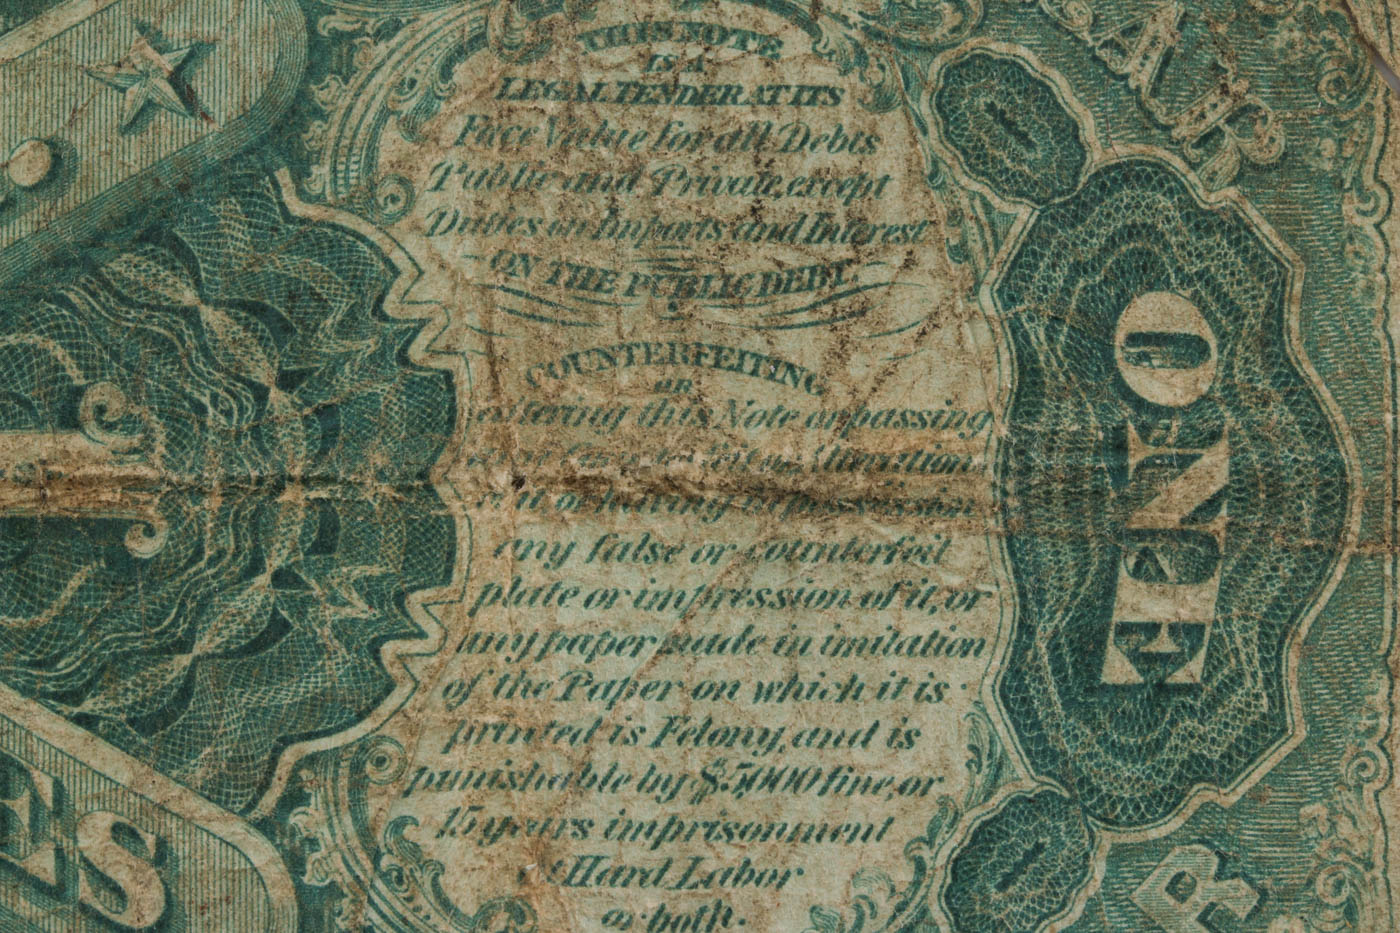 THIS NOTE
IS A
LEGAL TENDER AT ITS
Face Value for all Debts
Public and Private, except
Duties on Imports and Interest
ON THE PUBLIC DEBT.
COUNTERFEITING
OR
altering this Note or passing
any counterfeit or alteration
of it or having in possession
any false or counterfeit
plate or impression of it, or
any paper made in imitation
of the Paper on which it is
printed is Felony, and is
punishable by $5,000 fine, or
15 years imprisonment
at Hard Labor
or both.
ONE
1
ES
AR
R